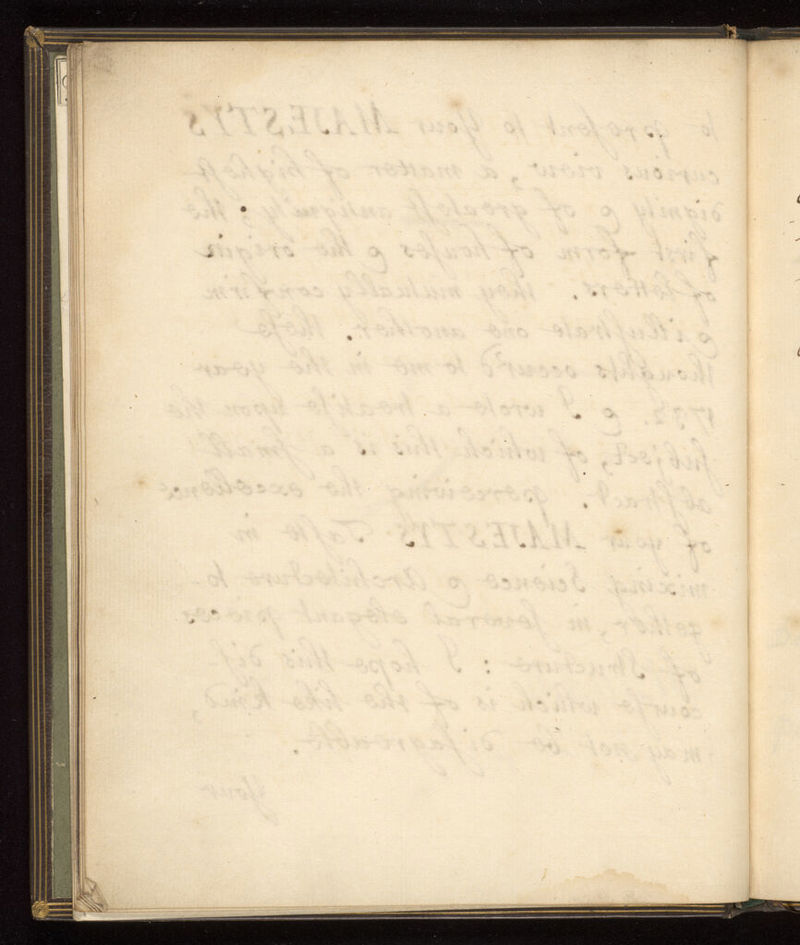 to present to Your MAJESTYS
curious view, a matter of highest
dignity & of greatest antiquity; the
first form of houses & the origin
of letters. they mutually confirm
& illustrate one another. these
thoughts occur'd to me in the year
& I wrote a treatise upon the
subject, of which this is a small
abstract. perceiving the excellence
of your MAJESTYS Taste in
mixing Science & Architecture to-
gether, in several elegant pieces
of Structure: I hope this dis-
course which is of the like kind,
may not be disagreable.
Your